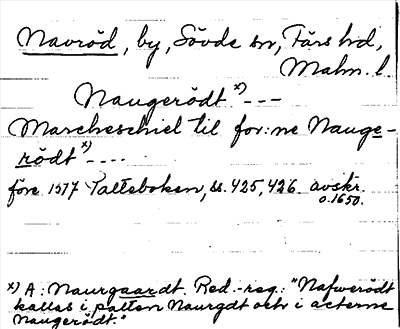 Navröd, by, Sövde sn, Färs hd,
Malm. l.
Naugerödt x) ---
Marcheschiel til for:ne Nauge-
rödt x) ----
före 1577 Palteboken, ss. 425, 426. avskr.
o. 1650.
x) A: Naurgaardt. Red.-reg.: "Nafwerödt
kallas i palten Naurgdt och i acterne
Naugerödt."